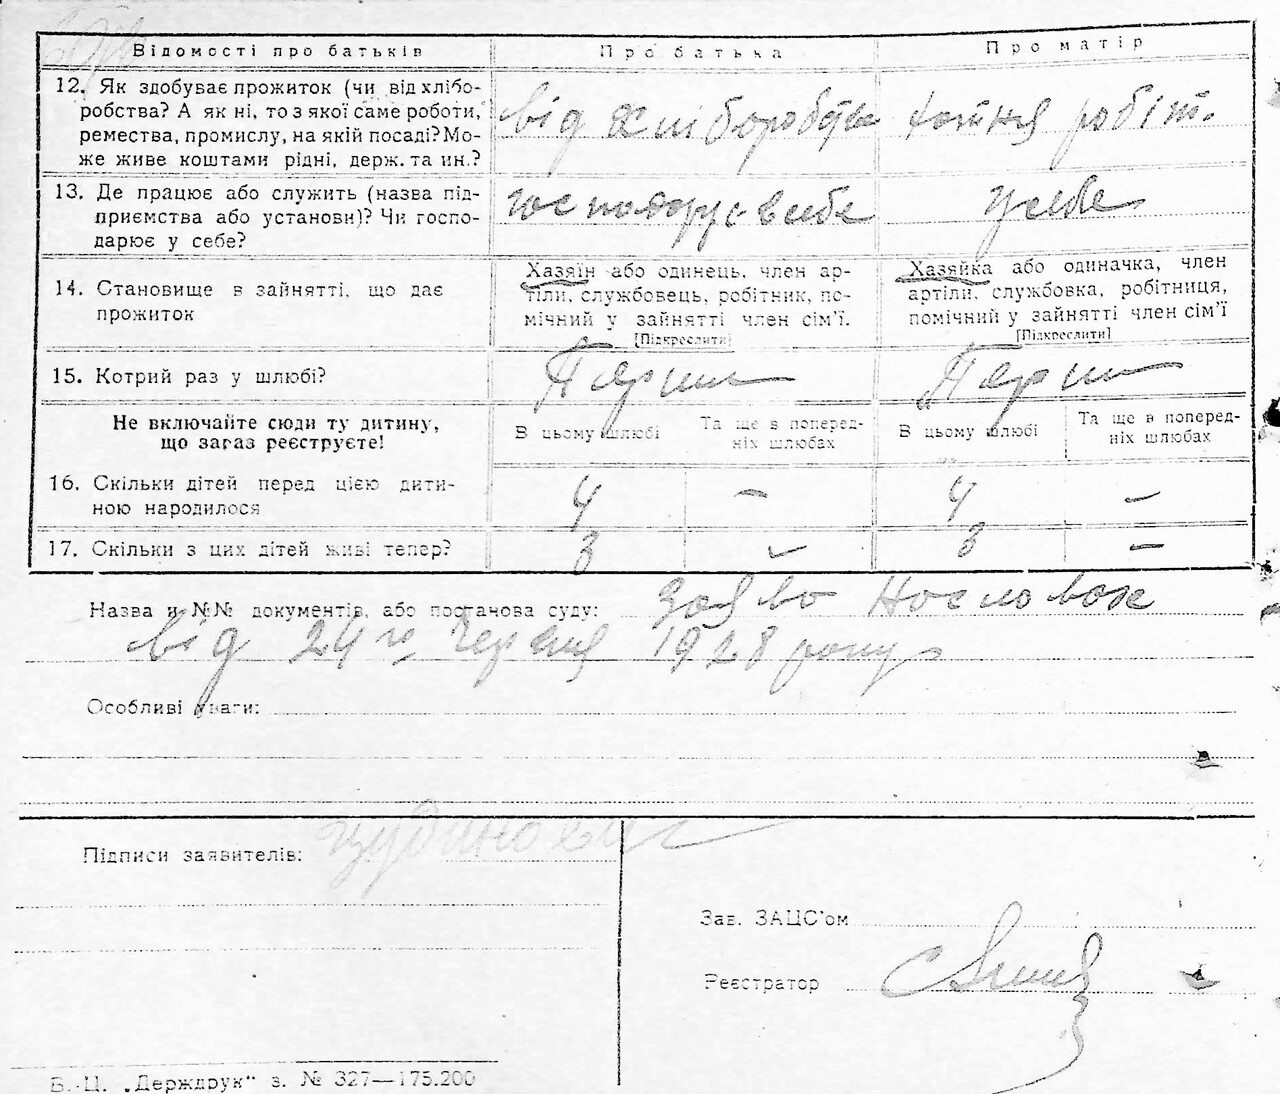 Відомості про батьків
Про батька
Про матір
12. Як здобуває прожиток (чи від хлібо-
робства? А як ні, то з якої саме роботи,
ремества, промислу, на якій посаді? Мо-
же живе коштами рідні, держ. та ин.?
від хліборобства
хатня робіт.
13. Де працює або служить (назва під-
приємства або установи)? Чи госпо-
дарює у себе?
господарує в себе
у себе
14. Становище в зайнятті, що дає
прожиток
Хазяїн або одинець, член ар-
тіли, службовець, робітник, по-
мічний у зайнятті член сім'ї.
[Підкреслити]
Хазяйка або одиначка, член
артіли, службовка, робітниця,
помічний у зайнятті член сім'ї
[Підкреслити]
15. Котрий раз у шлюбі?
Перший
Перший
Не включайте сюди ту дитину,
що загаз реєструєте!
В цьому шлюбі
Та ще в поперед-
ніх шлюбах
В цьому шлюбі
Та ще в поперед-
ніх шлюбах
16. Скільки дітей перед цією дити-
ною народилося
4 – 4 –
17. Скільки з цих дітей живі тепер?
3 – 3 –
Назва и №№ документів, або постанова суду: Заява
від 24го Червня 1928 року
Особливі уваги:
Підписи заявителів:
Зав. ЗАЦС'ом
Реєстратор
В.-Ц. „Держдрук" з. № 327—175.200